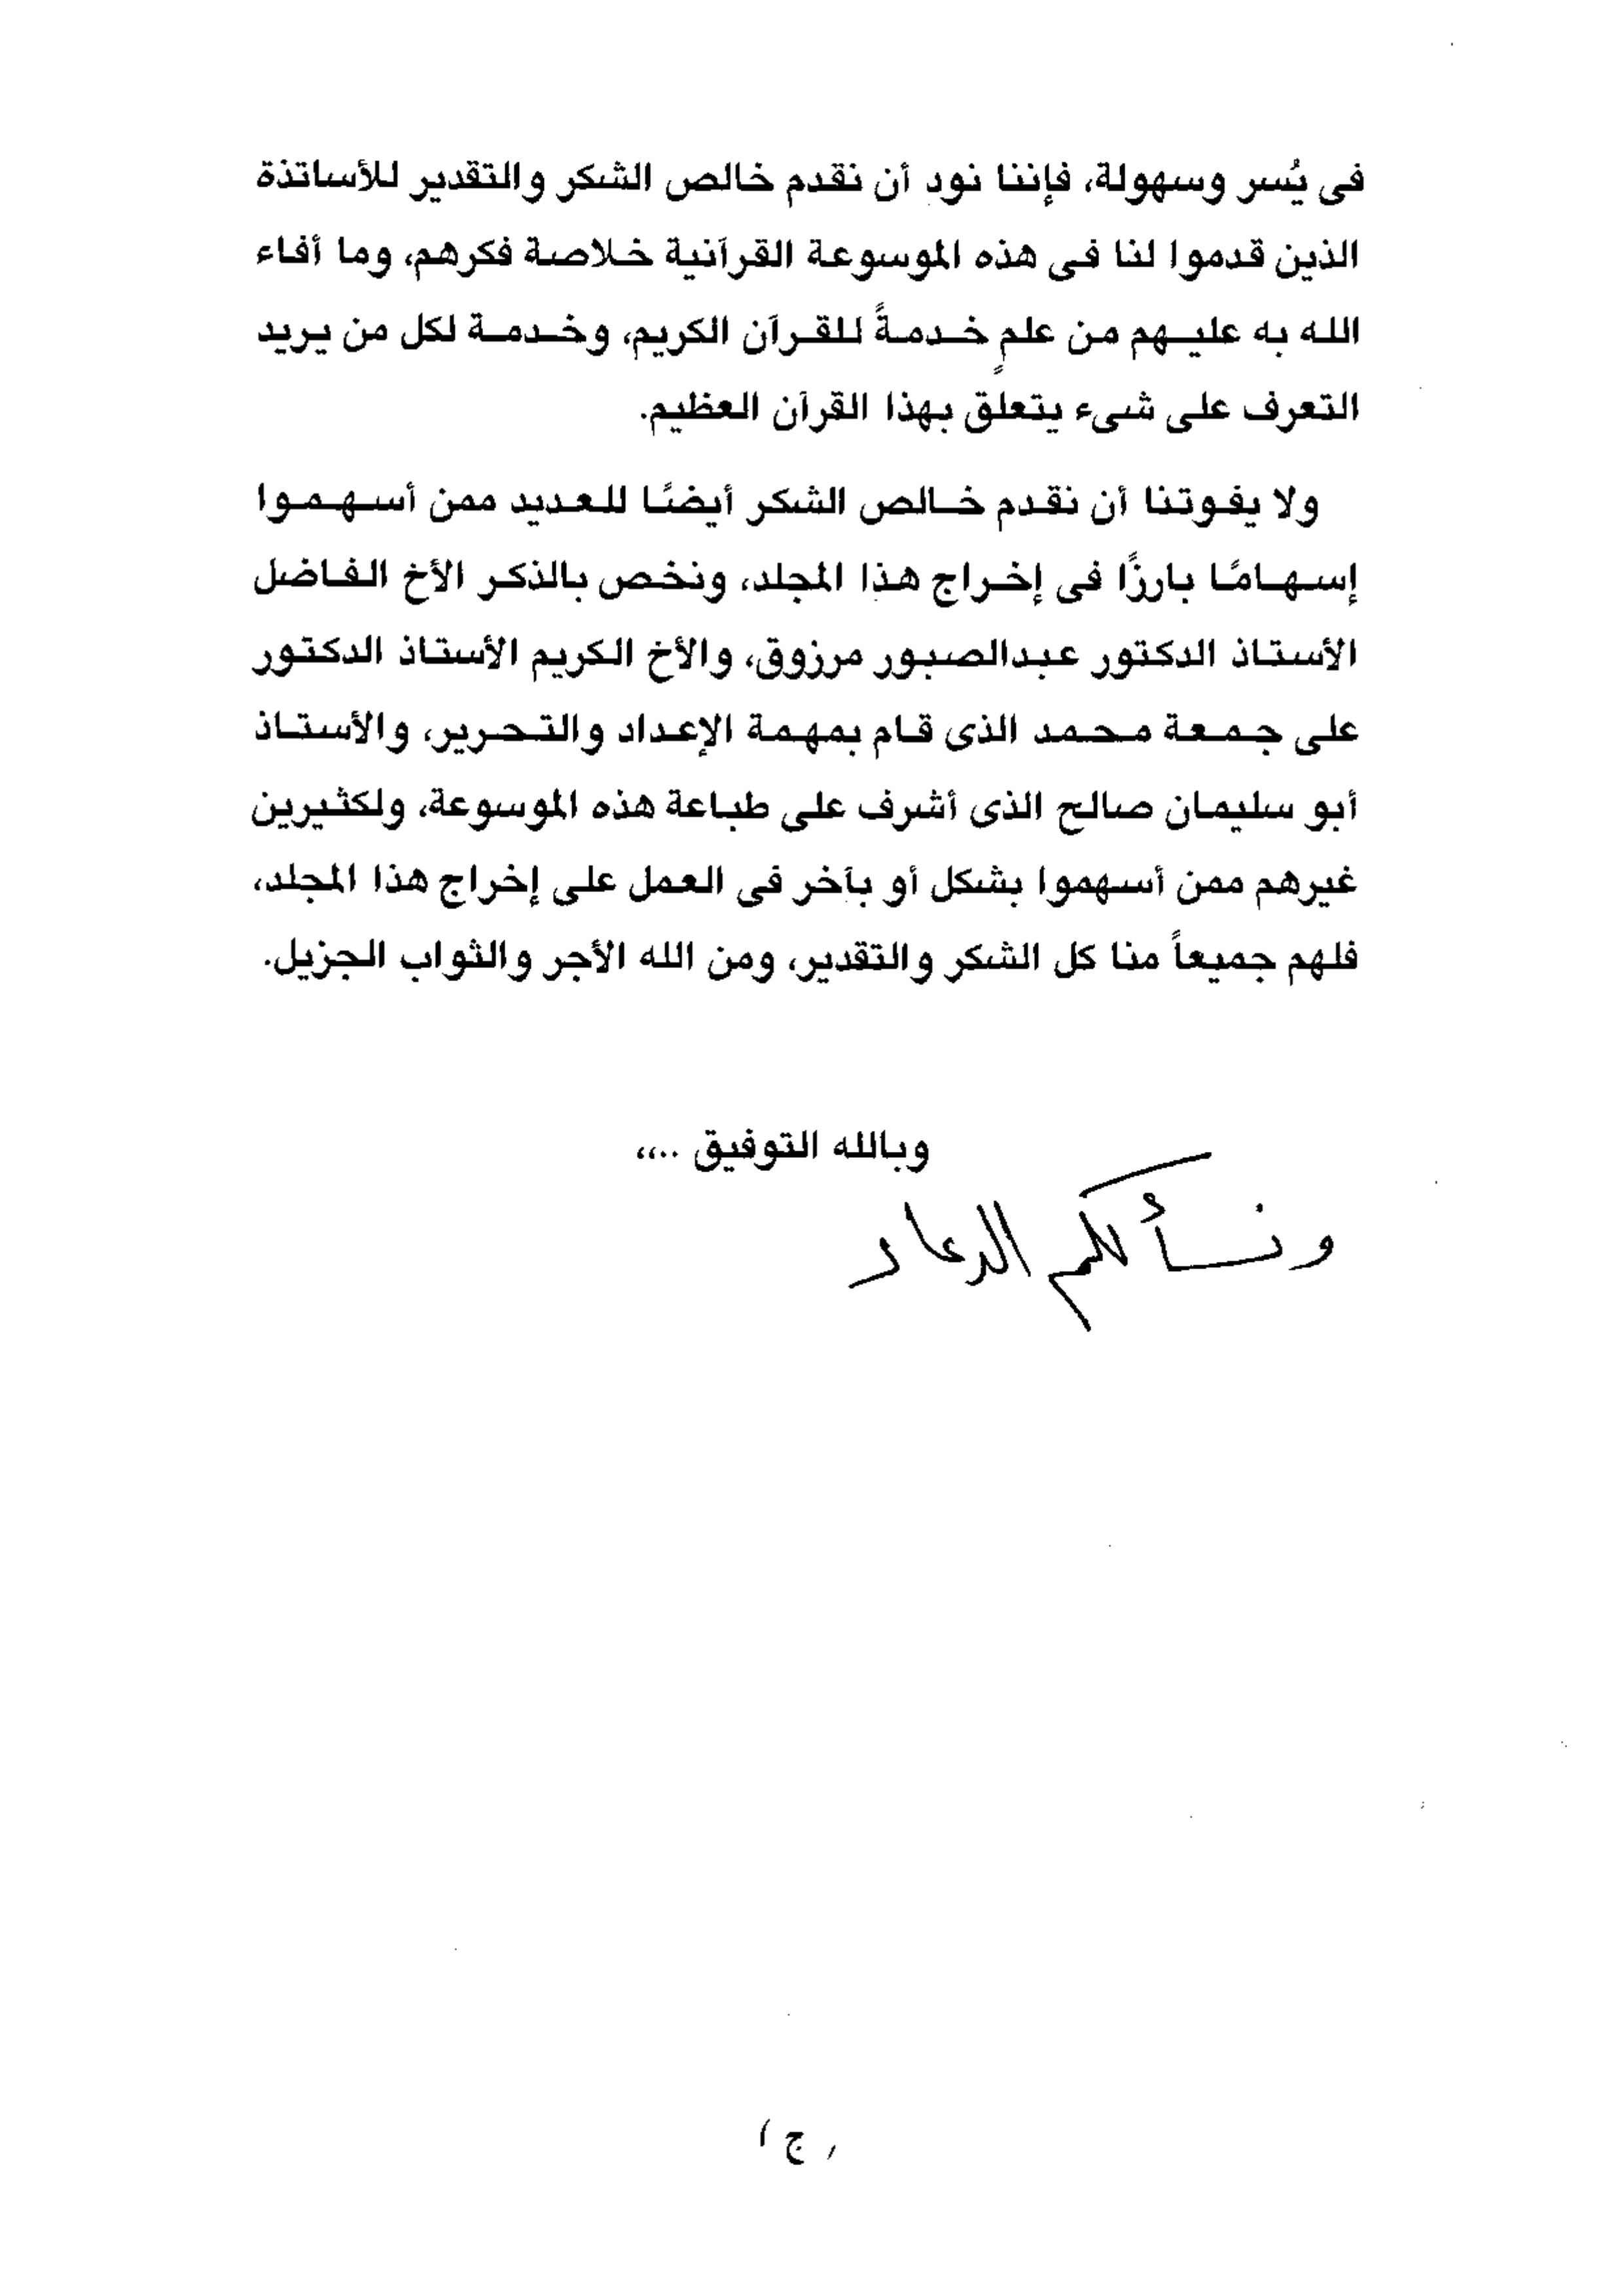 فى يُسر وسهولة، فإننا نود أن نقدم خالص الشكر والتقدير للأساتذة
الذين قدموا لنا فى هذه الموسوعة القرآنية خلاصة فكرهم، وما أفاء
الله به عليهم من علمٍ خدمةً للقرآن الكريم، وخدمة لكل من يريد
التعرف على شىء يتعلق بهذا القرآن العظيم.
ولا يفوتنا أن نقدم خالص الشكر أيضًا للعديد ممن أسهموا
إسهامًا بارزًا فى إخراج هذا المجلد، ونخص بالذكر الأخ الفاضل
الأستاذ الدكتور عبدالصبور مرزوق، والأخ الكريم الأستاذ الدكتور
على جمعة محمد الذى قام بمهمة الإعداد والتحرير، والأستاذ
أبو سليمان صالح الذى أشرف على طباعة هذه الموسوعة، ولكثيرين
غيرهم ممن أسهموا بشكل أو بآخر فى العمل على إخراج هذا المجلد،
فلهم جميعاً منا كل الشكر والتقدير، ومن الله الأجر والثواب الجزيل.
وبالله التوفيق ..،،
ونسألكم الدعاء
(ج)